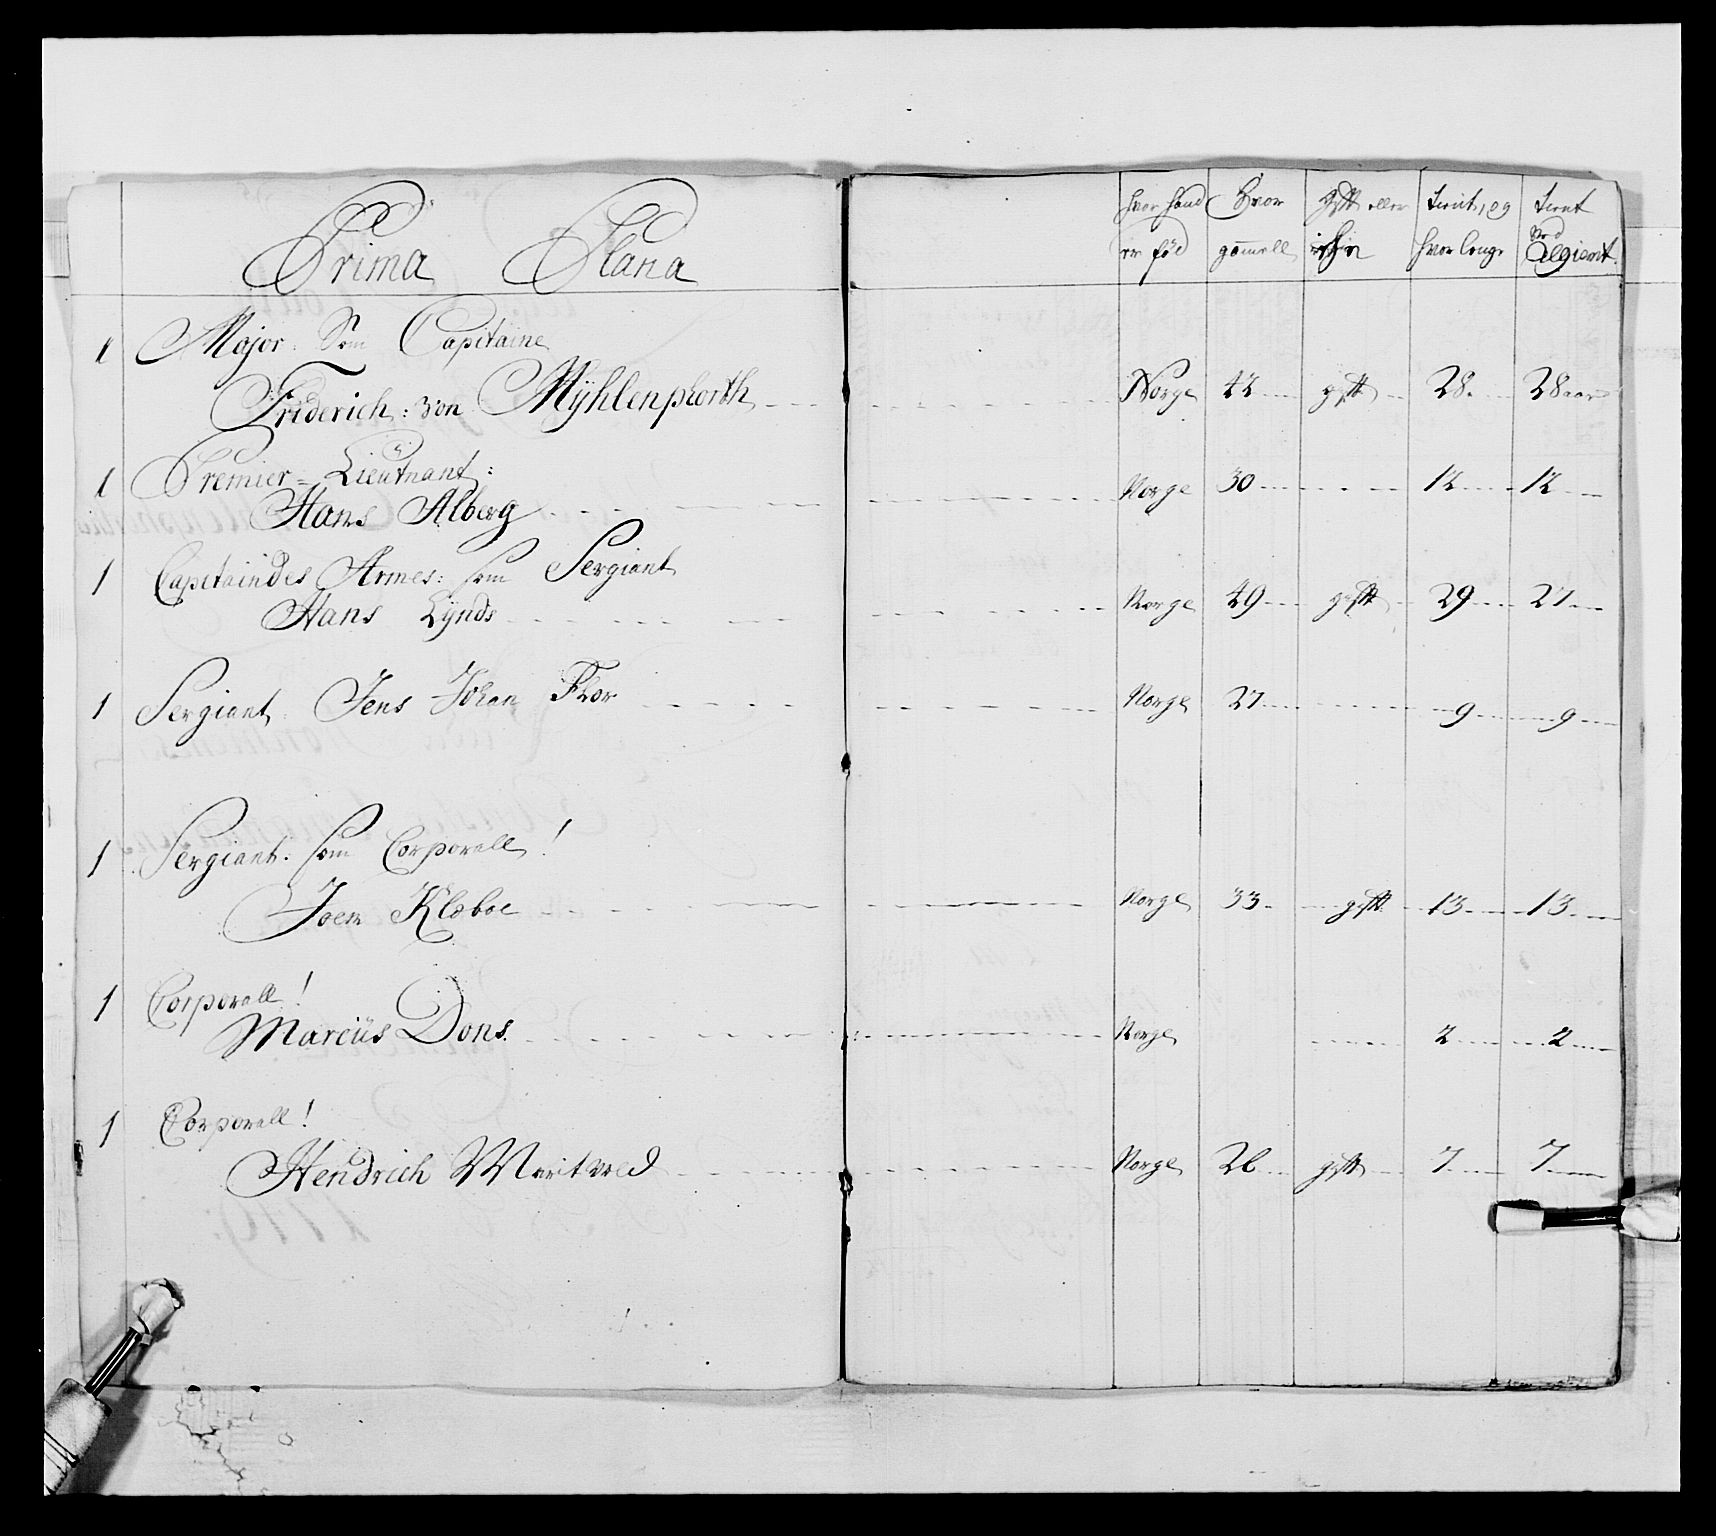 Prima Plana
hvor hand Hvor gift eller tient, og tient
er föd gammell hvor lenge ved
Regiemt.
1 Major: Som Capitaine
Friderich: von Mÿhlenphorth Norge 42 gift 28 28 aar
1 Premier-Lieütnant:
Hans Alberg Norge 30 12 12
1 Capitaindes Armes: som Sergiant
Hans Lÿnds Norge 49 gift 29 27
1 Sergiant: Jens Johan Flor Norge 27 9 9
1 Sergiant: som Corporall!
Joen Kleboe Norge 33 gift 13 13
1 Corporall!
Marcüs Dons Norge 2 2
1 Corporall!
Hendrich Norge 26 gift 7 7